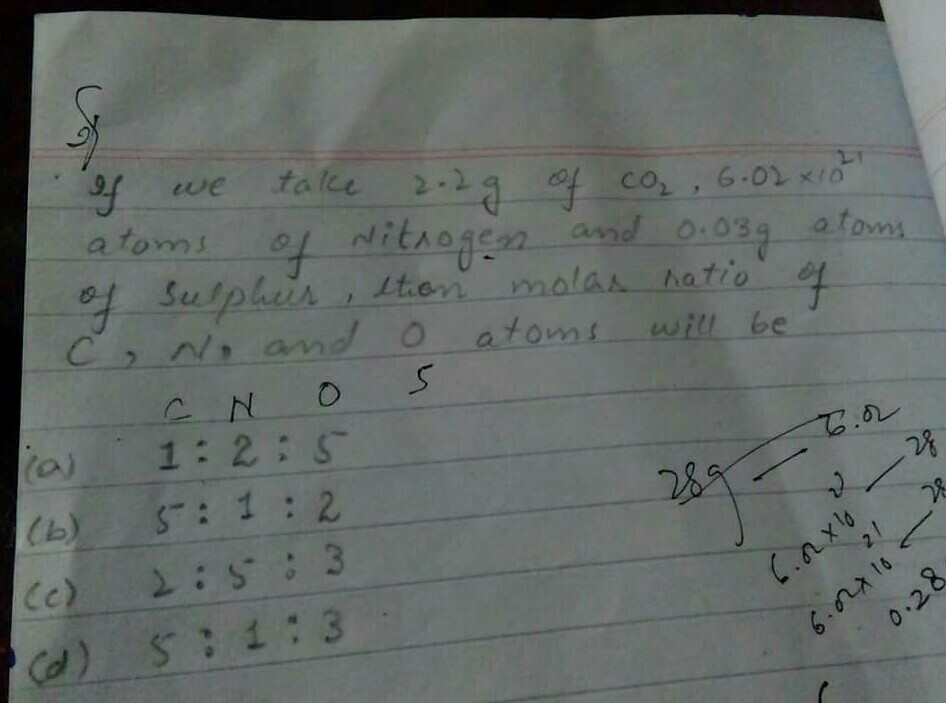 If we take 2.2g of CO2, 6.02 ×10²¹
atoms of Nitrogen and 0.03g atoms
of Sulphur, then molar ratio of
C, N, and O atoms will be
C N O S
(a) 1 : 2 : 5
(b) 5 : 1 : 2
(c) 2 : 5 : 3
(d) 5 : 1 : 3
28g — 6.02
28
6.02×10²¹
28
6.02×10
0.28